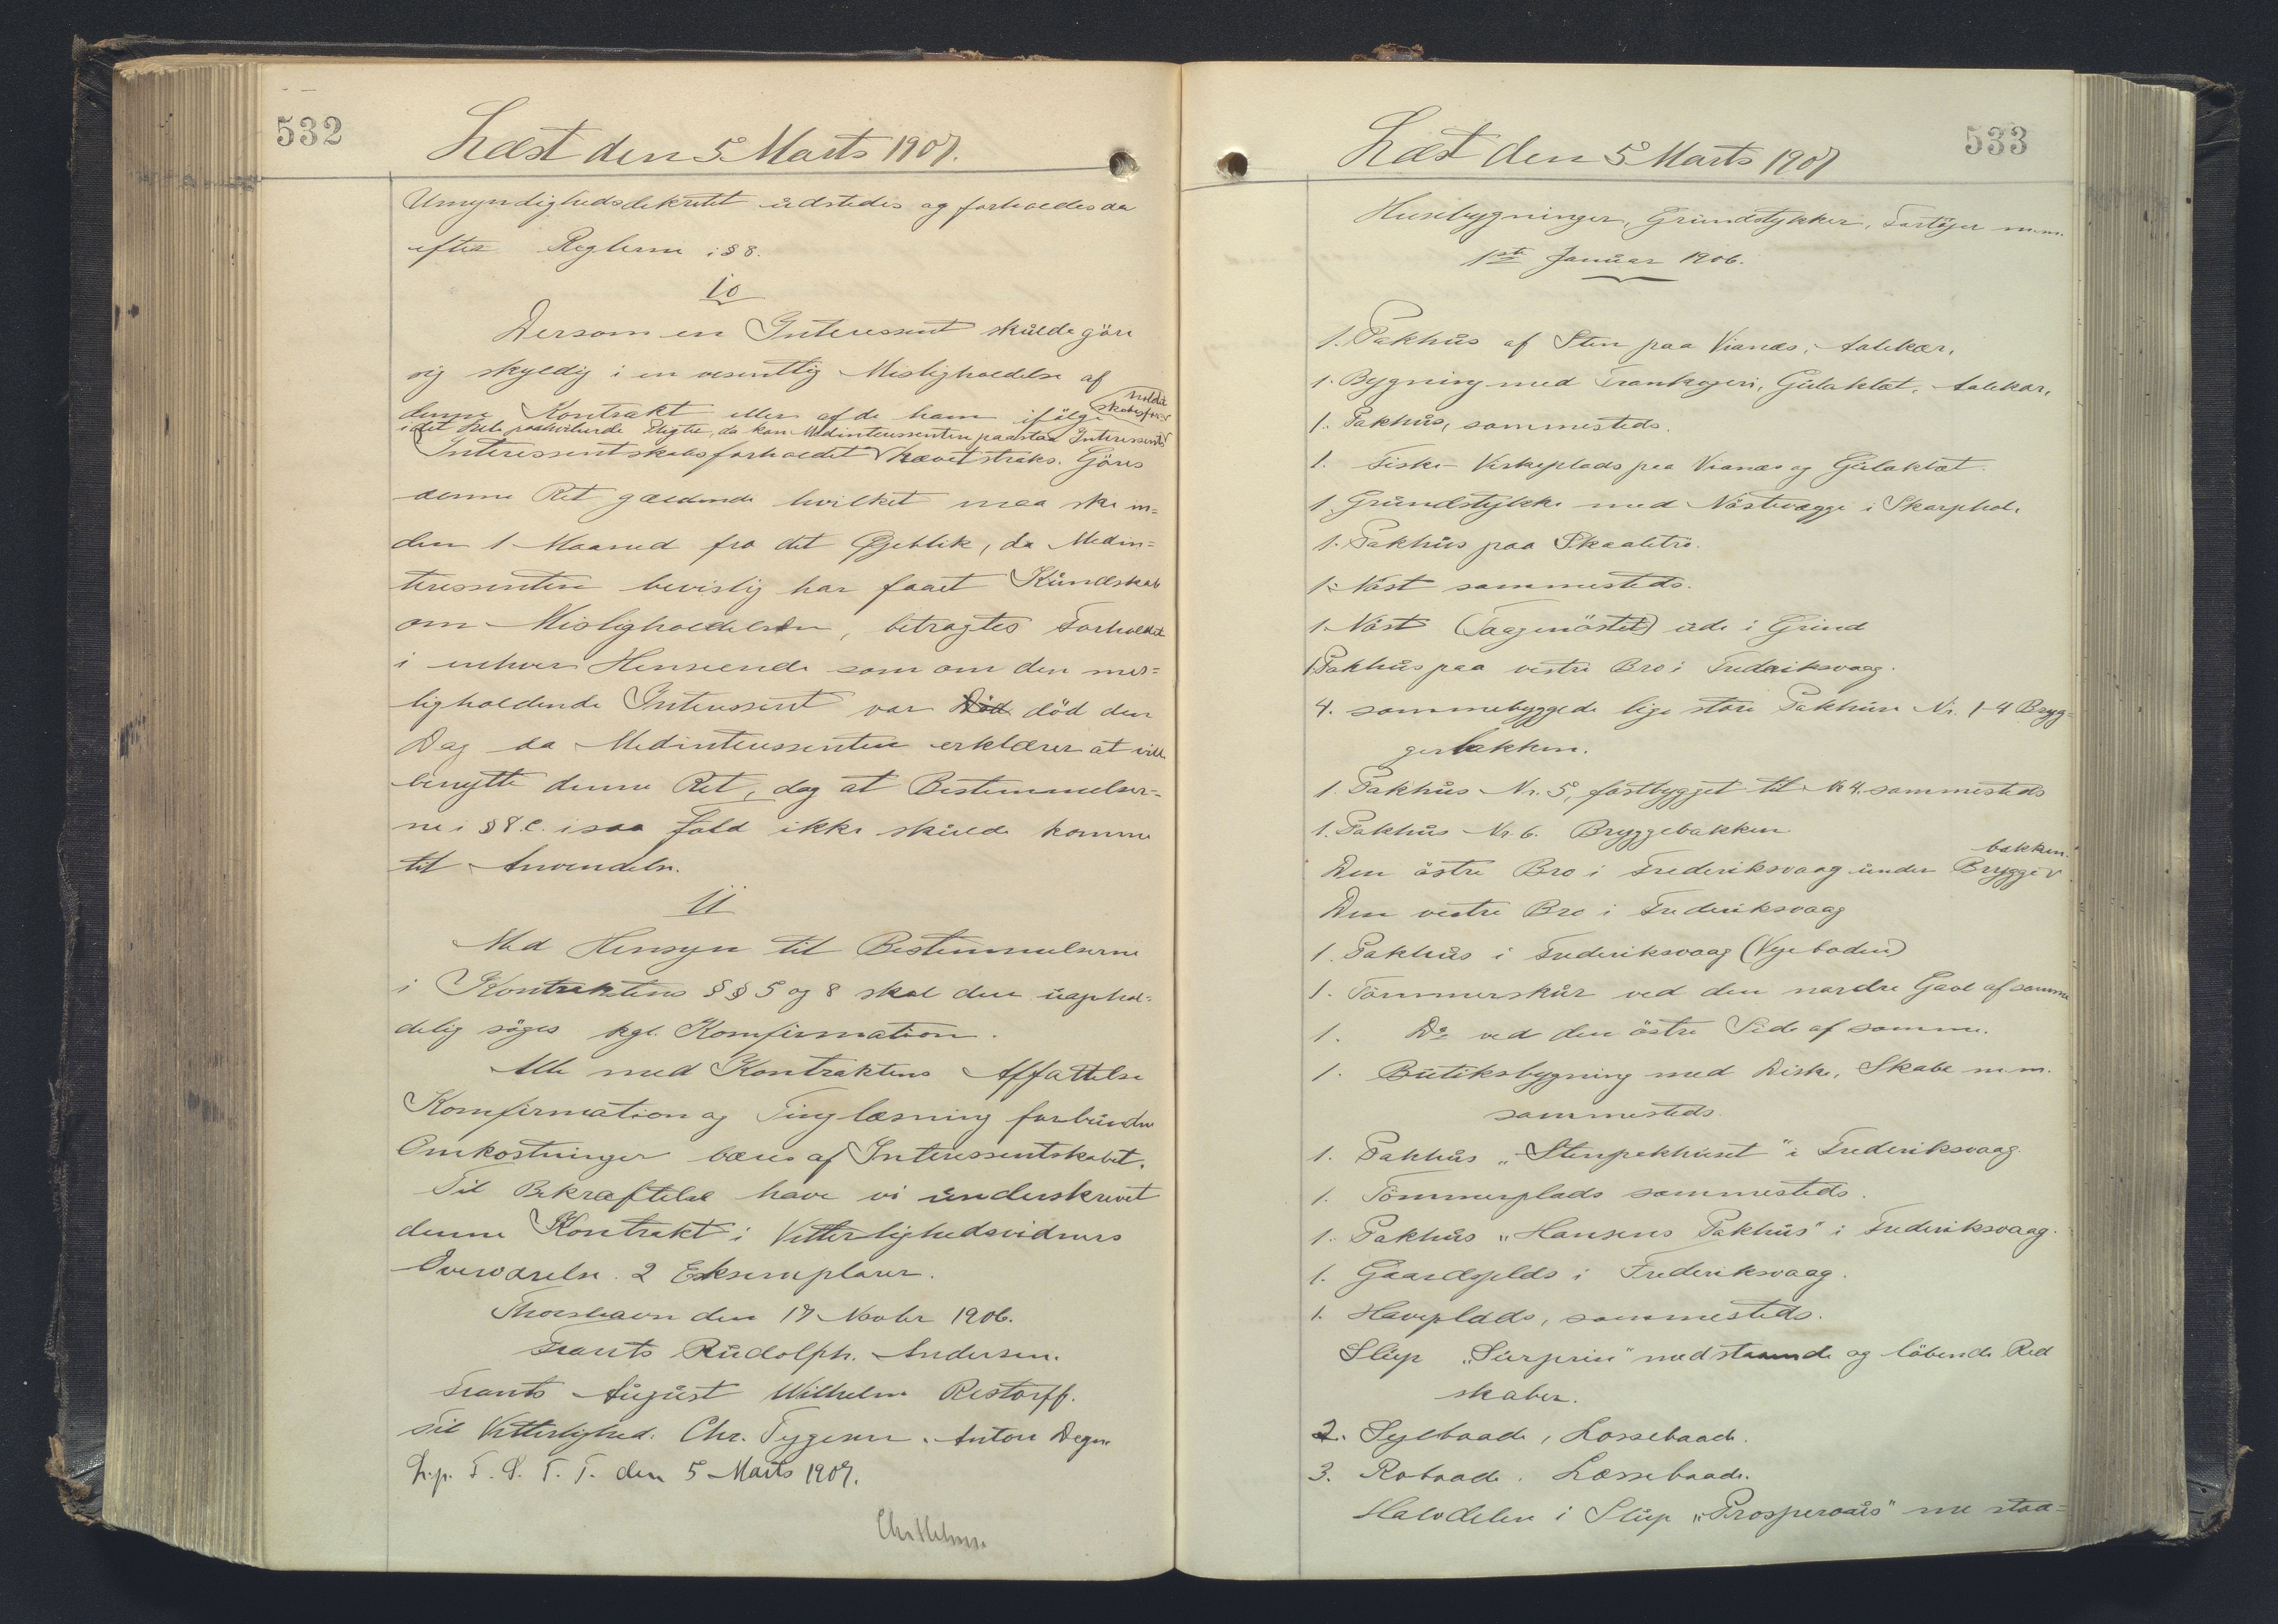 532
Læst den 5 Marts 1907.
Umyndighedsdekretet udstedes og forholdes da
efter Reglerne i § 8.
10
Dersom en Interessent skulde göre
sig skyldig i en væsentlig Misligholdelse af
denne Kontrakt eller af de ham ifölge
i det hele paahvilende Pligter, da kan Medinteressenten paastaa Interessent
Interessentskabsforholdet hævet straks. Göres
denne Ret gældende hvilket maa ske in=
den 1 Maaned fra det Øjeblik, da Medin=
teressenten bevislig har faaet Kundskab
om Misligholdelsen, betragtes Forholdet
i enhver Henseende som om den mis=
ligholdende Interessent var död den
Dag da Medinteressenten erklærer at ville
benytte denne Ret, dog at Bestemmelser=
ne i § 8.c. i saa Fald ikke skulde komme
til Anvendelse.
11
Med Hensyn til Bestemmelserne
i Kontraktens §§ 5 og 8 skal der uophol=
delig söges kgl. Konfirmation.
Alle med Kontraktens Affattelse
Konfirmation og Tinglæsning forbundne
Omkostninger bæres af Interessentskabet.
Til Bekræftelse have vi underskrevet
denne Kontrakt i Vitterlighedsvidners
Overværelse. 2 Eksemplarer.
Thorshavn den 17 Novbr 1906.
Frants Rudolph. Andersen.
Frants August Wilhelm Restorff.
Til Vitterlighed. Chr. Tygesen. Anton Degn.
L.p. F. S. T. T. den 5 Marts 1907.
533
Læst den 5 Marts 1907
Husebygninger, Grundstykker, Fartöjer m.m.
1ste Januar 1906.
1. Pakhus af Sten paa Vianæs, Aalekær.
1. Bygning med Trankogeri, Gulaklet, Aalekær.
1. Pakhus, sammesteds.
1. Fiske-Virkeplads paa Vianæs og Gulaklat.
1. Grundstykke med Nöstevægge i Skarphol.
1. Pakhus paa Skaaletrö.
1. Nöst sammesteds.
1. Nöst (Taagenöstet) ude i Grind
1 Pakhus paa vestre Bro i Frederiksvaag.
4. sammebyggede lige store Pakhuse Nr. 1-4 Bryg=
gerbakken.
1. Pakhus Nr. 5, fastbygget til Nr 4. sammesteds
1. Pakhus Nr. 6. Bryggebakken
bakken.
Den östre Bro i Frederiksvaag under Brygge
Den vestre Bro i Frederiksvaag
1. Pakhus i Frederiksvaag (Vejeboden)
1. Tömmerskur ved den nordre Gavl af samme
1. Do ved den östre Side af samme.
1. Butiksbygning med Diske, Skabe m.m.
sammesteds.
1. Pakhus "Stenpakhuset" i Frederiksvaag.
1. Tömmerplads sammesteds.
1. Pakhus "Hansens Pakhus" i Frederiksvaag.
1. Gaardsplds i Frederiksvaag.
1. Haveplads, sammesteds.
Slup "Surprise" med staaende og löbende Red
skaber.
2. Sejlbaade, Lossebaade.
3. Robaade. Lossebaade.
Halvdelen i Slup "Prosperoais" me staa=